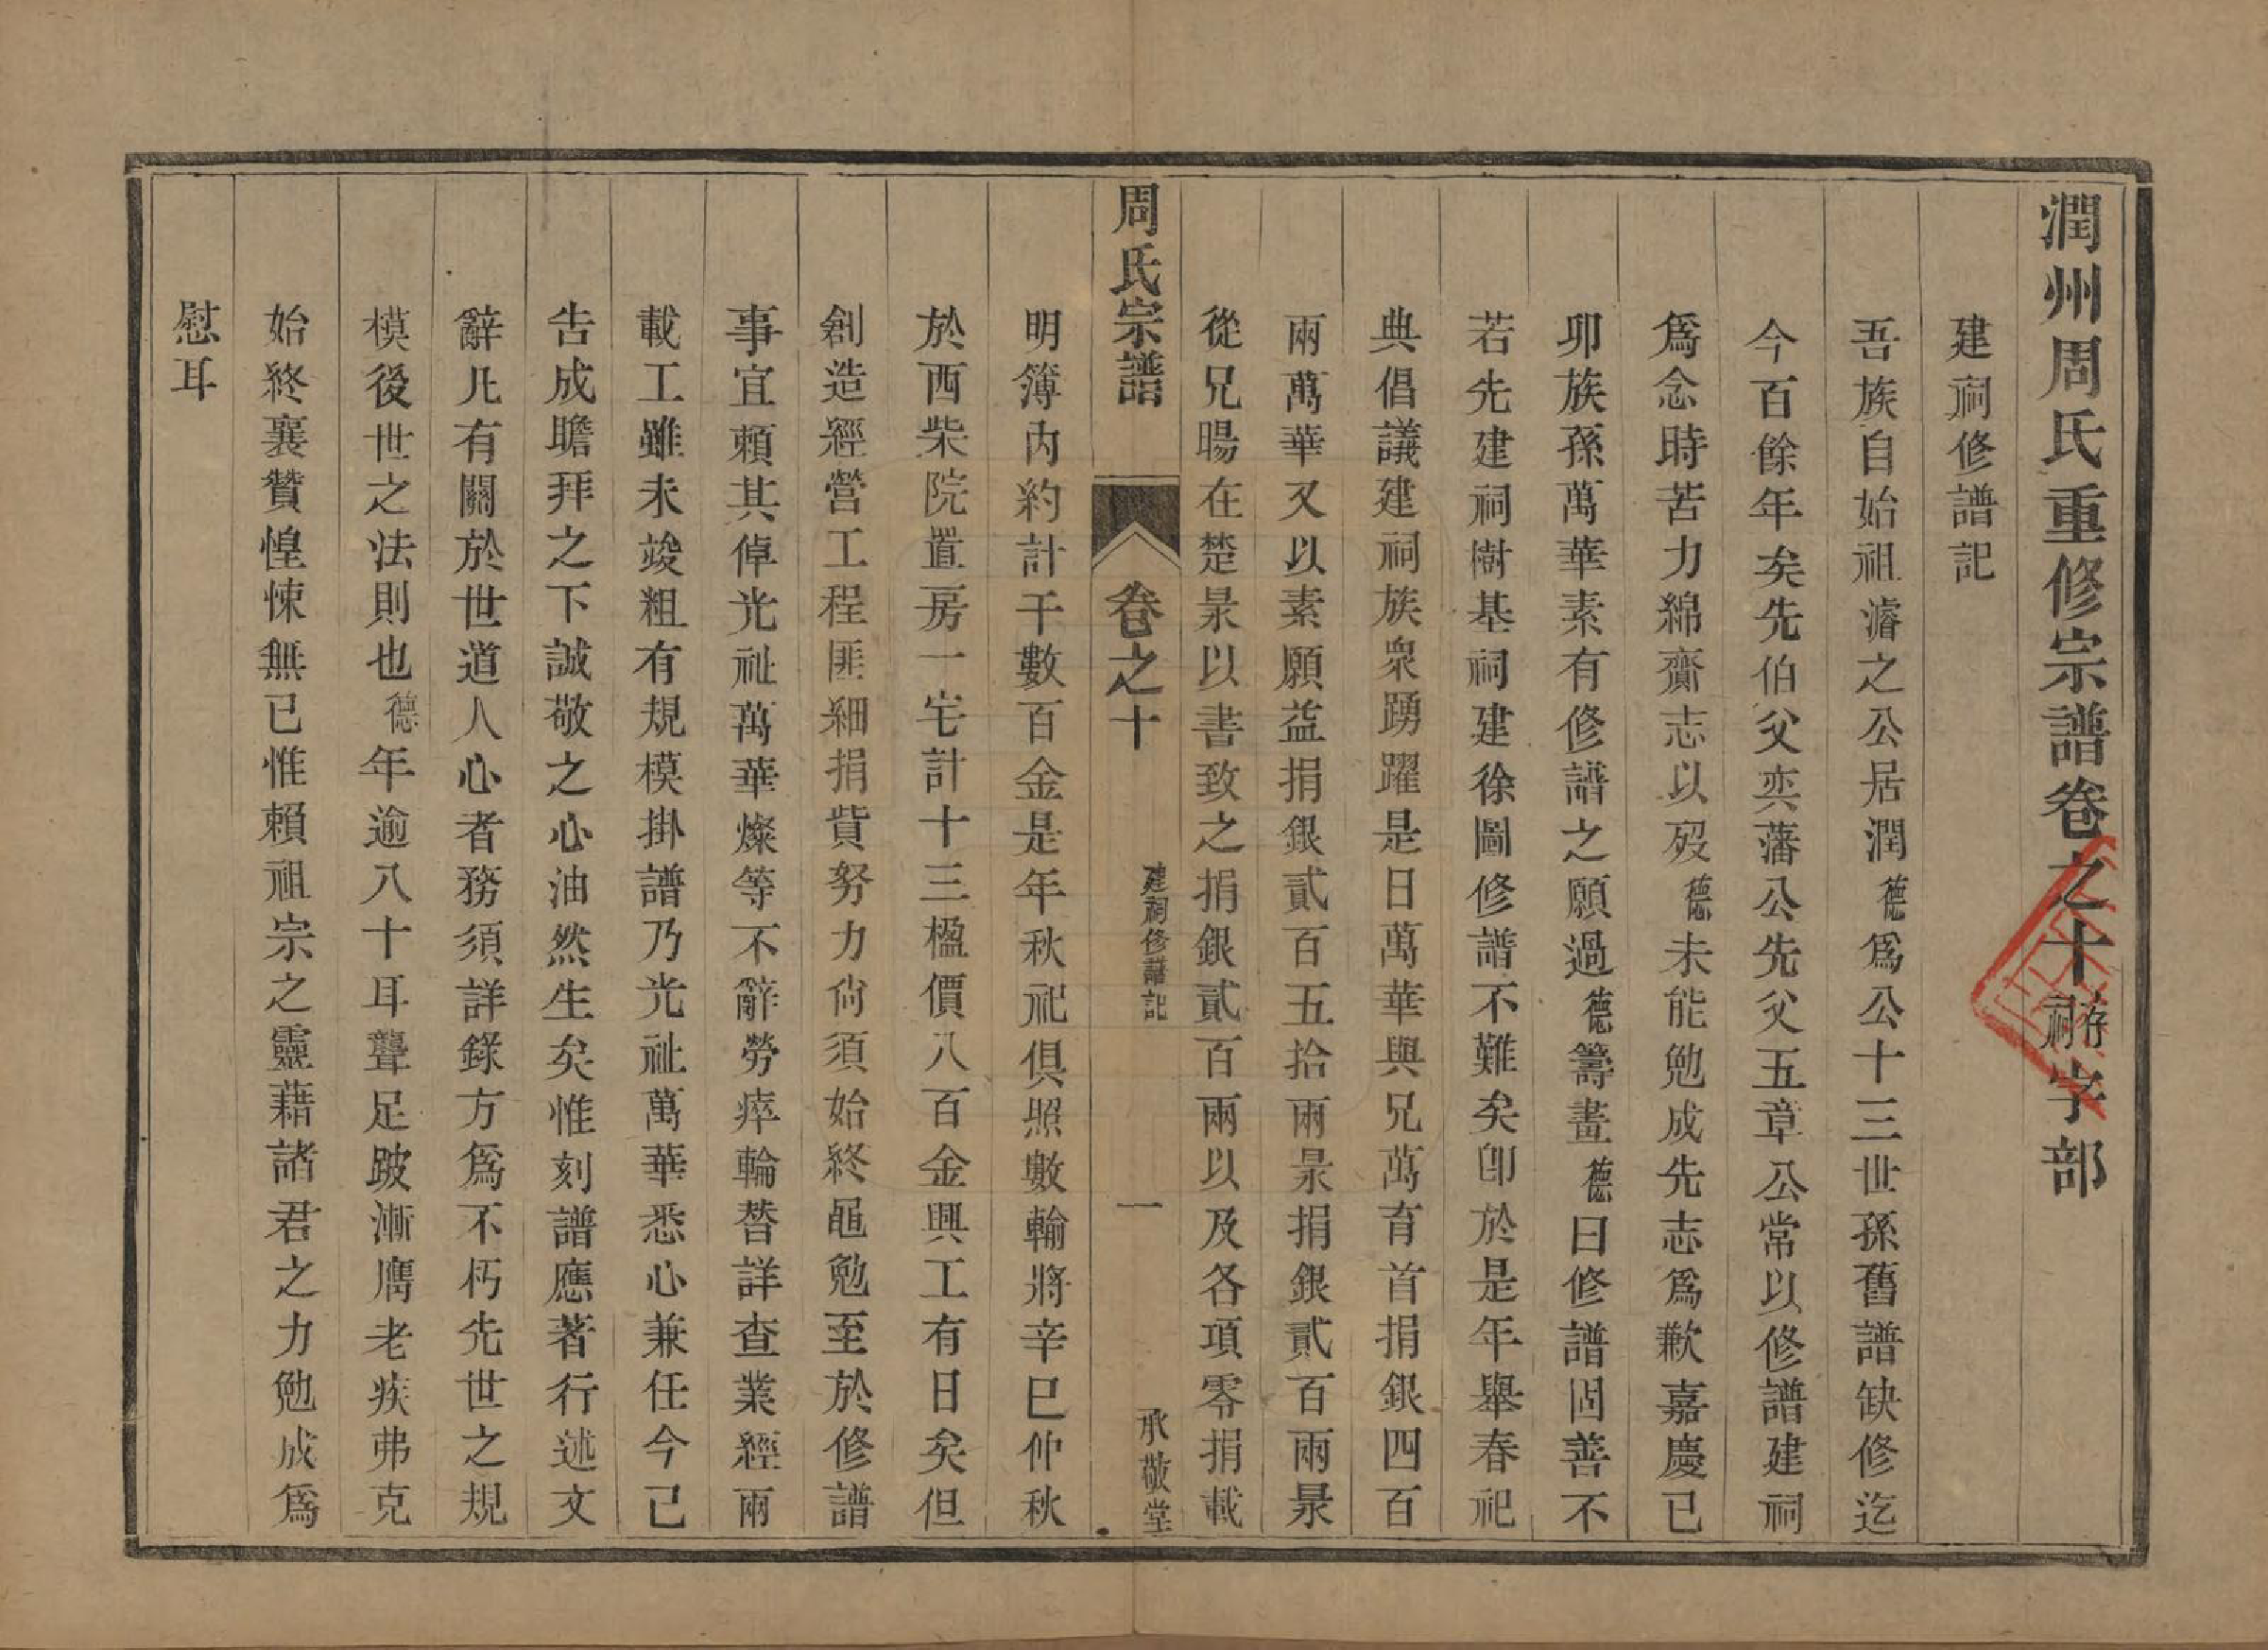 潤州周氏重修宗譜卷之十 字部
建祠修譜記
吾族自始祖濬之公居潤德爲公十三世孫舊譜缺修迄
今百餘年矣先伯父奕藩公先父五章公常以修譜建祠
爲念時苦力綿齎志以歿德未能勉成先志爲歉嘉慶已
卯族孫萬華素有修譜之願過德籌畫德曰修譜固善不
若先建祠樹基祠建徐圖修譜不難矣卽於是年舉春祀
典倡議建祠族衆踴躍是日萬華與兄萬育首捐銀四百
兩萬華又以素願益捐銀貳百五拾兩景捐銀貳百兩景
從兄暘在楚景以書致之捐銀貳百兩以及各項零捐載
周氏宗譜 卷之十 建祠修譜記 一 承敬堂
明簿內約計千數百金是年秋祀俱照數輸將辛巳仲秋
於西柴院置房一宅計十三楹價八百金興工有日矣但
創造經營工程匪細捐貲努力尙須始終黽勉至於修譜
事宜賴其倬光祉萬華燦等不辭勞瘁輪替詳查業經兩
載工雖未竣粗有規模掛譜乃光祉萬華悉心兼任今已
告成瞻拜之下誠敬之心油然生矣惟刻譜應著行述文
辭凡有關於世道人心者務須詳錄方爲不朽先世之規
模後世之法則也德年逾八十耳聾足跛漸膺老疾弗克
始終襄贊惶悚無已惟賴祖宗之靈藉諸君之力勉成爲
慰耳